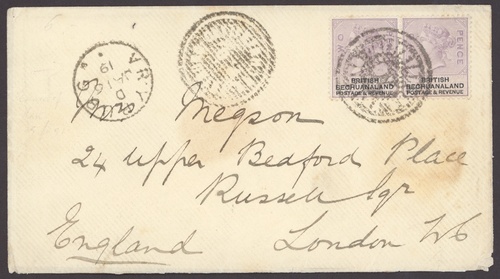 TWO PENCE
BRITISH BECHUANALAND POSTAGE & REVENUE
BRITISH BECHUANALAND POSTAGE & REVENUE
VRYBURG
D
JA
19
96
Megson
24 Upper Bedford Place
Russell Sqr
London WC
England